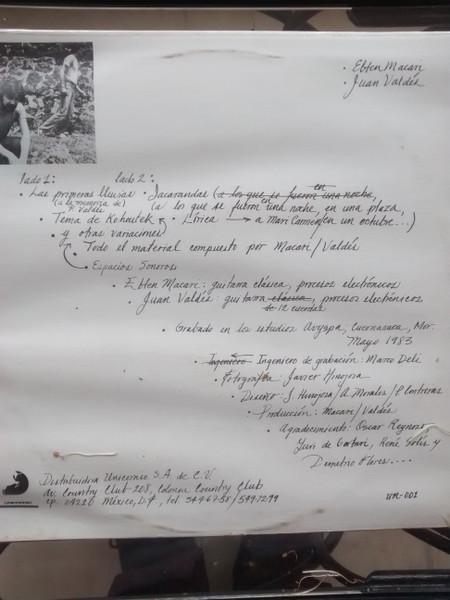 • Ebten Macari
• Juan Valdés
lado 1:
lado 2:
• Las primeras lluvias
(a la memoria de)
P. Valdés
• Jacarandas (a los que se fueron una noche,
(a los que se fueron en una noche, en una plaza,
en un octubre...)
• Tema de Kohoutek
• Lírica → a Mari Carmen
• y otras variaciones
• Todo el material compuesto por Macari/Valdés
• Espacios Sonoros
• Ebten Macari: guitarra clásica, procesos electrónicos
• Juan Valdés: guitarra clásica, procesos electrónicos
de 12 cuerdas
• Grabado en los estudios Avyspa, Cuernavaca, Mor.
Mayo 1983
• Ingeniero Ingeniero de grabación: Marco Deli
• Fotografía: Javier Hinojosa
• Diseño: J. Hinojosa/A. Morales/P. Contreras
• Producción: Macari/Valdés
• Agradecimiento: Oscar Reynoso
Yuri de Gortari, René Solís y
Demetrio Flores...
Distribuidora Unicornio S.A. de C.V.
av. Country Club 208, Colonia Country Club
cp. 04220 México, D.F., tel. 5446758/5491299
UNICORNIO
UR-001